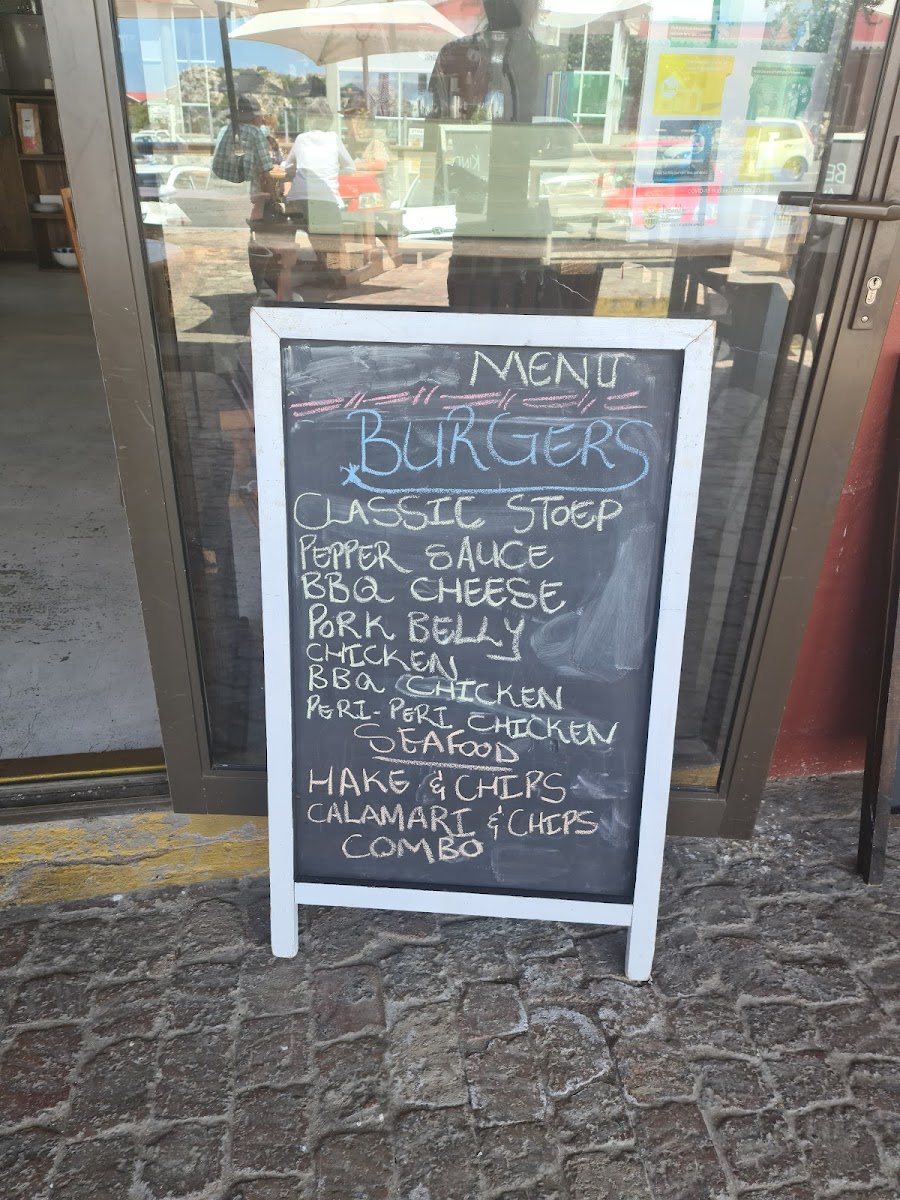 MENU
BURGERS
CLASSIC STOEP
PEPPER SAUCE
BBQ CHEESE
PORK BELLY
CHICKEN
BBQ CHICKEN
PERI-PERI CHICKEN
SEAFOOD
HAKE & CHIPS
CALAMARI & CHIPS
COMBO